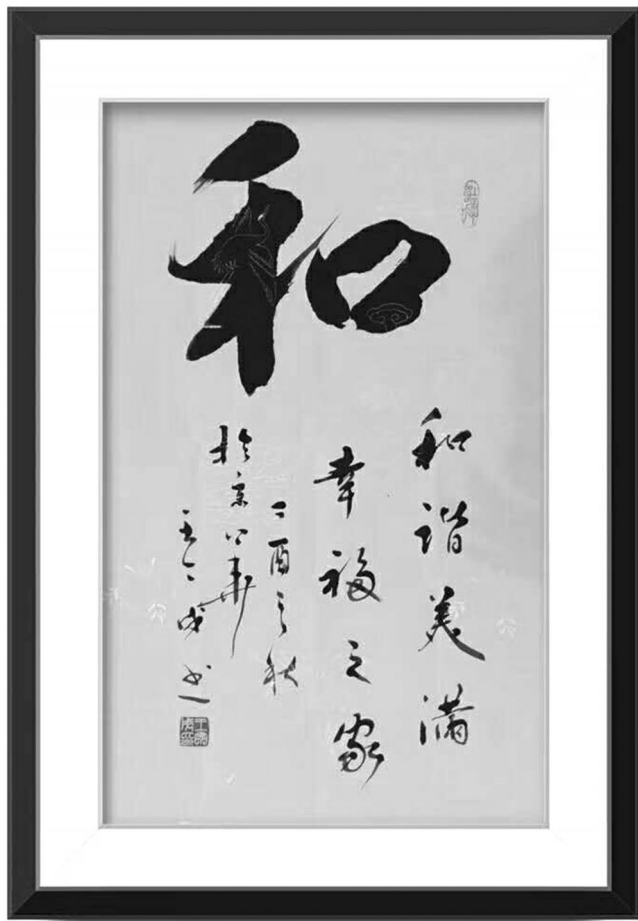 和
和谐美满
幸福之家
酉之秋
於京
书